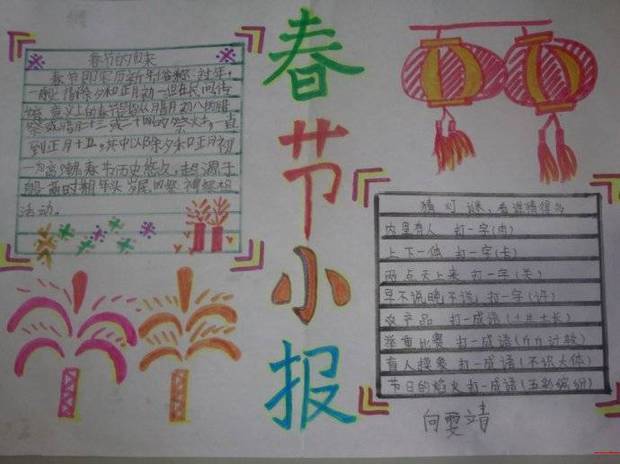 春节小报
春节的由来
春节即农历新年俗称过年，
一般指除夕和正月初一但在民间传
统意义上的春节是指从腊月初八的腊
祭或腊月二十三或二十四的祭灶，一直
到正月十五，其中以除夕和正月初
为高潮春节历史悠久，起源于
殷商时期年头岁尾的祭神祭祖
活动。
猜灯谜，看谁猜得多
内里有人 打一字(肉)
上下一体 打一字(卡)
两点天上来 打一字(关)
早不说晚不说 打一字(许)
农产品 打一成语(土生土长)
举重比赛 打一成语(斤斤计较)
盲人摸象 打一成语(不识大体)
节日的焰火 打一成语(五彩缤纷)
向雯靖